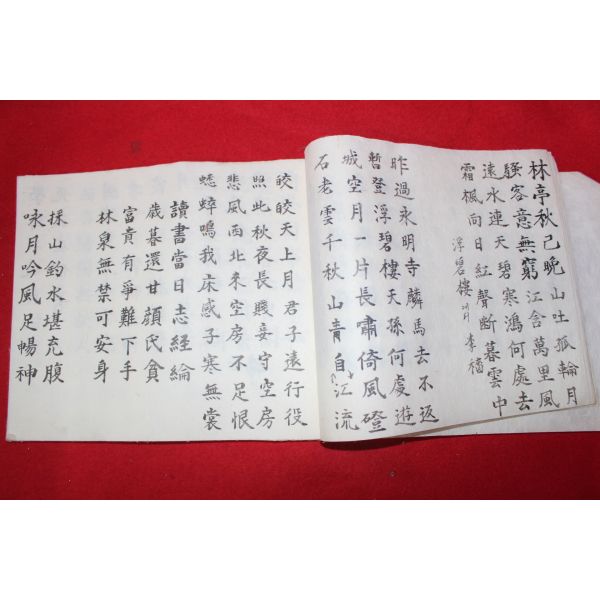 林亭秋已晚山吐孤輪月
騷客意無窮江含萬里風
遠水連天碧寒鴻何處去
霜楓向日紅聲斷暮雲中
浮碧樓 李穡
昨過永明寺麟馬去不返
暫登浮碧樓天孫何處遊
城空月一片長嘯倚風磴
石老雲千秋山青自江流
皎皎天上月君子遠行役
照此秋夜長賤妾守空房
悲風西北来空房不足恨
蟋蟀鳴我床感子寒無裳
讀書當日志經綸
歲暮還甘顔氏貧
富貴有爭難下手
林泉無禁可安身
採山釣水堪充腹
咏月吟風足暢神